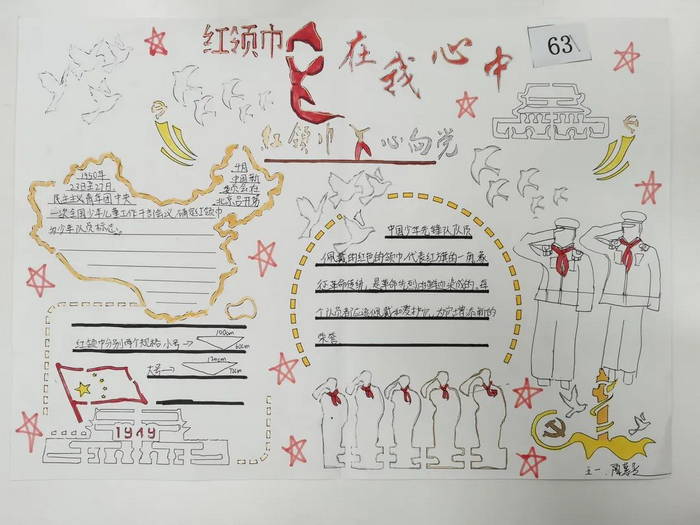 红领巾
在我心中
63
红领巾心向党
1950年
23日至27日
民主义青年团中央
一次全国少年儿童工作干部会议，确定红领巾
为少年队员标志。
4月
中国新
委员会在
北京召开第
中国少年先锋队队员
佩戴的红色的领巾，代表红旗的一角，象
征革命传统，是革命先烈的鲜血染成的，每
个队员都应该佩戴和爱护它，为它增添新的
荣誉
红领巾分别两个规格 小号→
100cm
60cm
大号→
120cm
72cm
1949
五一